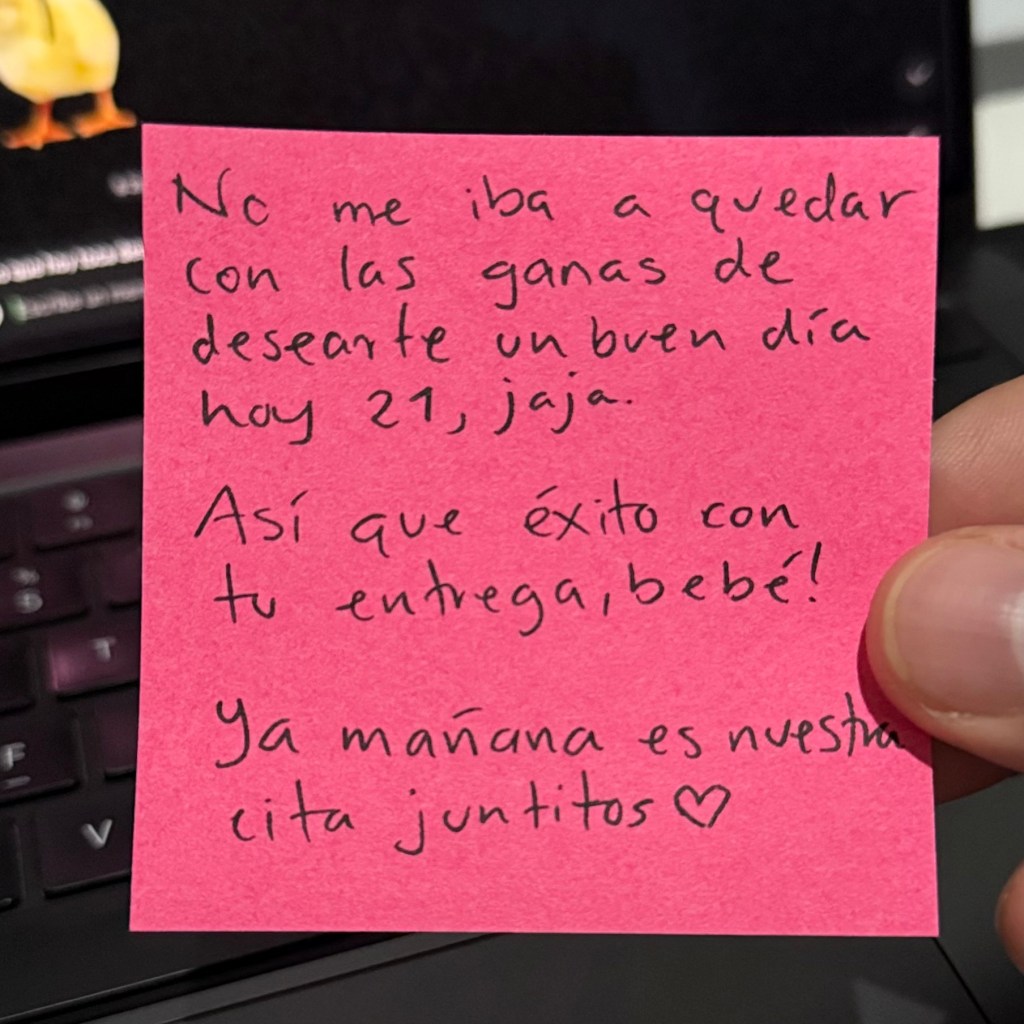 No me iba a quedar
con las ganas de
desearte un buen día
hoy 21, jaja.
Así que éxito con
tu entrega, bebé!
Ya mañana es nuestra
cita juntitos ♡
T
F
V